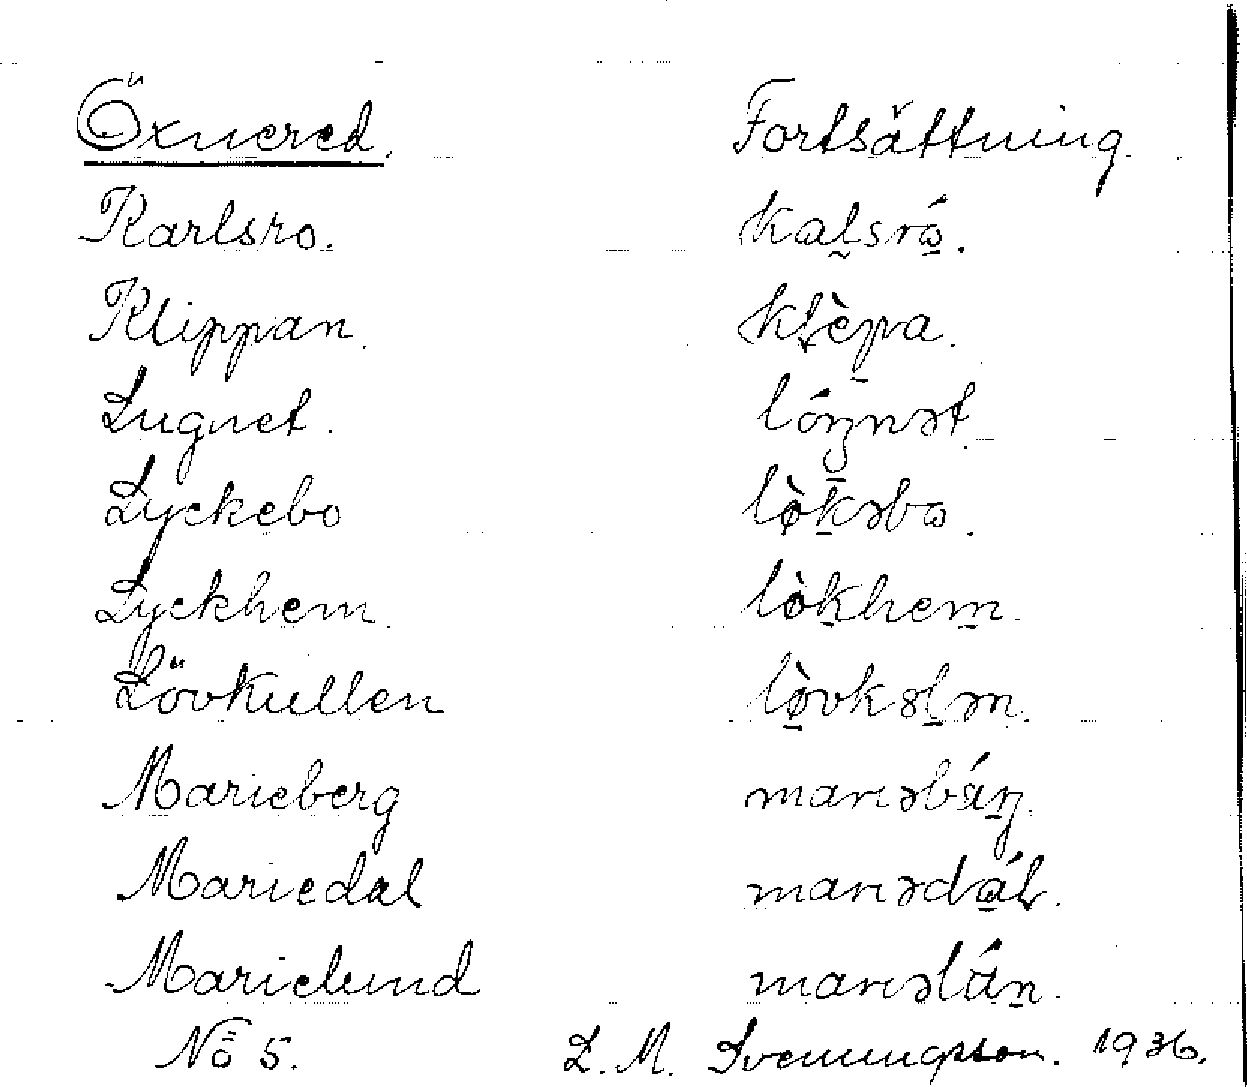 Öxnered. Fortsättning.
Karlsro. kalsró.
Klippan. klèpa.
Lugnet. lóŋnət.
Lyckebo lø̀kəbo.
Lyckhem. lø̀khem.
Lövkullen lø̀vkələn.
Marieberg
Mariedal marıədál.
Marielund
No 5. L. M. Svenungsson. 1936.